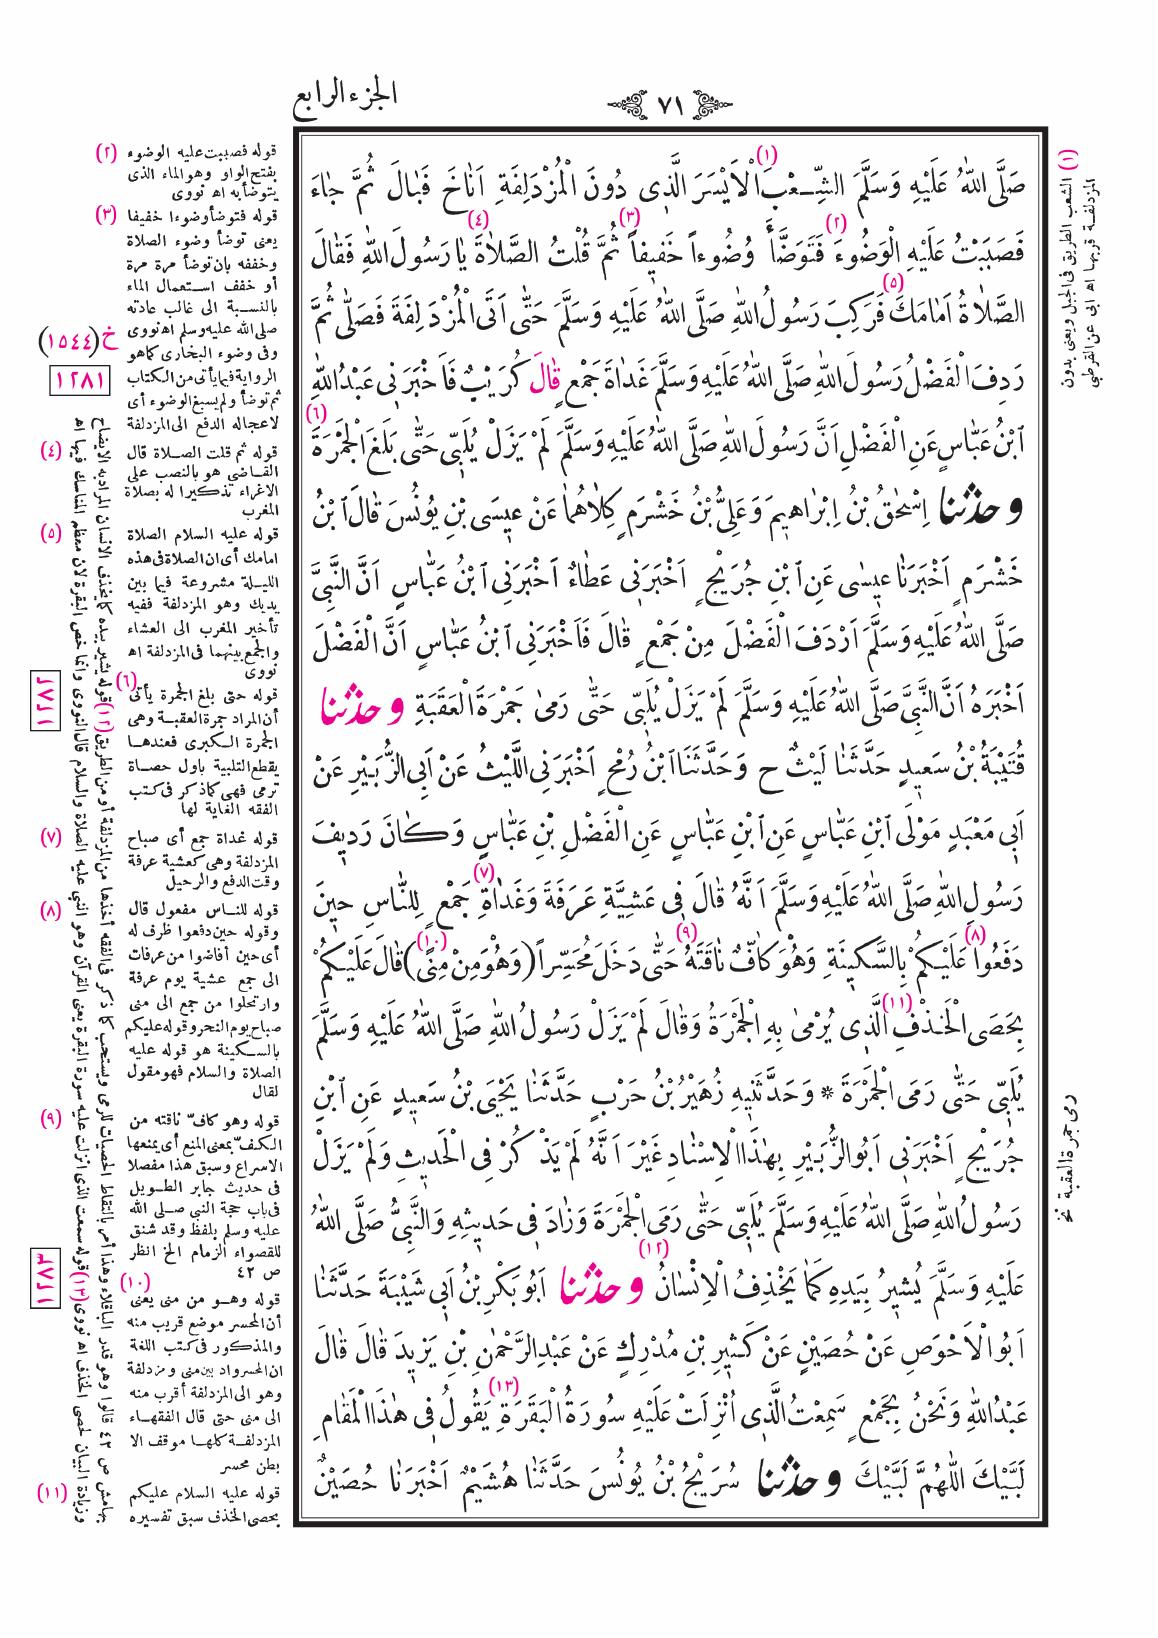 الجزء الرابع
٧١
صَلَّى اللّٰهُ عَلَيْهِ وَسَلَّمَ الشِّعْبَ(١) الْاَيْسَرَ الَّذِى دُونَ الْمُزْدَلِفَةِ اَنَاخَ فَبَالَ ثُمَّ جَاءَ
فَصَبَبْتُ عَلَيْهِ الْوَضُوءَ(٢) فَتَوَضَّأَ وُضُوءاً خَفِيفاً(٣) ثُمَّ قُلْتُ الصَّلَاةَ(٤) يَا رَسُولَ اللّٰهِ فَقَالَ
الصَّلَاةُ اَمَامَكَ(٥) فَرَكِبَ رَسُولُ اللّٰهِ صَلَّى اللّٰهُ عَلَيْهِ وَسَلَّمَ حَتّٰى اَتَى الْمُزْدَلِفَةَ فَصَلّٰى ثُمَّ
رَدِفَ الْفَضْلُ رَسُولَ اللّٰهِ صَلَّى اللّٰهُ عَلَيْهِ وَسَلَّمَ غَدَاةَ جَمْعٍ قَالَ كُرَيْبٌ فَاَخْبَرَنِى عَبْدُ اللّٰهِ
ابْنُ عَبَّاسٍ عَنِ الْفَضْلِ اَنَّ رَسُولَ اللّٰهِ صَلَّى اللّٰهُ عَلَيْهِ وَسَلَّمَ لَمْ يَزَلْ يُلَبِّى حَتّٰى بَلَغَ الْجَمْرَةَ(٦)
و حدثنا اِسْحٰقُ بْنُ اِبْرَاهِيمَ وَعَلِيُّ بْنُ خَشْرَمٍ كِلَاهُمَا عَنْ عِيسَى بْنِ يُونُسَ قَالَ ابْنُ
خَشْرَمٍ اَخْبَرَنَا عِيسٰى عَنِ ابْنِ جُرَيْجٍ اَخْبَرَنِى عَطَاءٌ اَخْبَرَنِى ابْنُ عَبَّاسٍ اَنَّ النَّبِيَّ
صَلَّى اللّٰهُ عَلَيْهِ وَسَلَّمَ اَرْدَفَ الْفَضْلَ مِنْ جَمْعٍ قَالَ فَاَخْبَرَنِى ابْنُ عَبَّاسٍ اَنَّ الْفَضْلَ
اَخْبَرَهُ اَنَّ النَّبِيَّ صَلَّى اللّٰهُ عَلَيْهِ وَسَلَّمَ لَمْ يَزَلْ يُلَبِّى حَتّٰى رَمٰى جَمْرَةَ الْعَقَبَةِ و حدثنا
قُتَيْبَةُ بْنُ سَعِيدٍ حَدَّثَنَا لَيْثٌ ح وَحَدَّثَنَا ابْنُ رُمْحٍ اَخْبَرَنِى اللَّيْثُ عَنْ اَبِى الزُّبَيْرِ عَنْ
اَبِى مَعْبَدٍ مَوْلَى ابْنِ عَبَّاسٍ عَنِ ابْنِ عَبَّاسٍ عَنِ الْفَضْلِ بْنِ عَبَّاسٍ وَكَانَ رَدِيفَ
رَسُولِ اللّٰهِ صَلَّى اللّٰهُ عَلَيْهِ وَسَلَّمَ اَنَّهُ قَالَ فِى عَشِيَّةِ عَرَفَةَ وَغَدَاةِ(٧) جَمْعٍ لِلنَّاسِ حِينَ
دَفَعُوا(٨) عَلَيْكُمْ بِالسَّكِينَةِ وَهُوَ كَافٌّ نَاقَتَهُ(٩) حَتّٰى دَخَلَ مُحَسِّراً (وَهُوَ مِنْ مِنًى)(١٠) قَالَ عَلَيْكُمْ
بِحَصَى الْخَذْفِ(١١) الَّذِى يُرْمٰى بِهِ الْجَمْرَةُ وَقَالَ لَمْ يَزَلْ رَسُولُ اللّٰهِ صَلَّى اللّٰهُ عَلَيْهِ وَسَلَّمَ
يُلَبِّى حَتّٰى رَمَى الْجَمْرَةَ * وَحَدَّثَنِيهِ زُهَيْرُ بْنُ حَرْبٍ حَدَّثَنَا يَحْيَى بْنُ سَعِيدٍ عَنِ ابْنِ
جُرَيْجٍ اَخْبَرَنِى اَبُو الزُّبَيْرِ بِهٰذَا الْاِسْنَادِ غَيْرَ اَنَّهُ لَمْ يَذْكُرْ فِى الْحَدِيثِ وَلَمْ يَزَلْ
رَسُولُ اللّٰهِ صَلَّى اللّٰهُ عَلَيْهِ وَسَلَّمَ يُلَبِّى حَتّٰى رَمَى الْجَمْرَةَ وَزَادَ فِى حَدِيثِهِ وَالنَّبِيُّ صَلَّى اللّٰهُ
عَلَيْهِ وَسَلَّمَ يُشِيرُ بِيَدِهِ كَمَا يَخْذِفُ الْاِنْسَانُ(١٢) و حدثنا اَبُو بَكْرِ بْنُ اَبِى شَيْبَةَ حَدَّثَنَا
اَبُو الْاَحْوَصِ عَنْ حُصَيْنٍ عَنْ كَثِيرِ بْنِ مُدْرِكٍ عَنْ عَبْدِ الرَّحْمٰنِ بْنِ يَزِيدَ قَالَ قَالَ
عَبْدُ اللّٰهِ وَنَحْنُ بِجَمْعٍ سَمِعْتُ الَّذِى اُنْزِلَتْ عَلَيْهِ سُورَةُ الْبَقَرَةِ(١٣) يَقُولُ فِى هٰذَا الْمَقَامِ
لَبَّيْكَ اللّٰهُمَّ لَبَّيْكَ و حدثنا سُرَيْجُ بْنُ يُونُسَ حَدَّثَنَا هُشَيْمٌ اَخْبَرَنَا حُصَيْنٌ
(١) الشعب الطريق فى الجبل ويعنى بدون
المزدلفة قربها اه ابى عن القرطبي
رمى جمرة العقبة نخ
(٢) قوله فصببت عليه الوضوء
بفتح الواو وهو الماء الذى
يتوضأ به اه نووى
(٣) قوله فتوضأ وضوءا خفيفا
يعنى توضأ وضوء الصلاة
وخففه بان توضأ مرة مرة
أو خفف استعمال الماء
بالنسبة الى غالب عادته
صلى الله عليه وسلم اه نووى
وفى وضوء البخارى كما هو
الرواية فيما يأتى من الكتاب
ثم توضأ ولم يسبغ الوضوء أى
لاعجاله الدفع الى المزدلفة
(٤) قوله ثم قلت الصلاة قال
القاضى هو بالنصب على
الاغراء تذكيرا له بصلاة
المغرب
(٥) قوله عليه السلام الصلاة
امامك أى ان الصلاة فى هذه
الليلة مشروعة فيما بين
يديك وهو المزدلفة ففيه
تأخير المغرب الى العشاء
والجمع بينهما فى المزدلفة اه
نووى
(٦) قوله حتى بلغ الجمرة يأتى
أن المراد جمرة العقبة وهى
الجمرة الكبرى فعندها
يقطع التلبية باول حصاة
ترمى فهى كما ذكر فى كتب
الفقه الغاية لها
(٧) قوله غداة جمع أى صباح
المزدلفة وهى كعشية عرفة
وقت الدفع والرحيل
(٨) قوله للناس مفعول قال
وقوله حين دفعوا ظرف له
أى حين أفاضوا من عرفات
الى جمع عشية يوم عرفة
وارتحلوا من جمع الى منى
صباح يوم النحر وقوله عليكم
بالسكينة هو قوله عليه
الصلاة والسلام فهو مقول
لقال
(٩) قوله وهو كافّ ناقته من
الكفّ بمعنى المنع أى يمنعها
الاسراع وسبق هذا مفصلا
فى حديث جابر الطويل
فى باب حجة النبى صلى الله
عليه وسلم بلفظ وقد شنق
للقصواء الزمام الخ انظر
ص ٤٢
(١٠) قوله وهو من منى يعنى
أن المحسر موضع قريب منه
والمذكور فى كتب اللغة
ان المحسر واد بين منى ومزدلفة
وهو الى المزدلفة أقرب منه
الى منى حتى قال الفقهاء
المزدلفة كلها موقف الا
بطن محسر
(١١) قوله عليه السلام عليكم
بحصى الخذف سبق تفسيره
بهامش ص ٤٢ قالوا وهو قدر الباقلاء وهذا أمر بالتقاط الحصيات للرمى ويستحب كما ذكر فى الفقه أخذها من المزدلفة أو من الطريق (١٢) قوله يشير بيده كما يخذف الانسان المراد به الايضاح
وزيادة البيان لحصى الخذف اه نووى (١٣) قوله سمعت الذى انزلت عليه سورة البقرة يعنى القرآن وهو النبى عليه الصلاة والسلام قال النووى وانما خص البقرة لان معظم المناسك فيها اه
خ (١٥٤٤)
١٢٨١
١٢٨٢
١٢٨٣